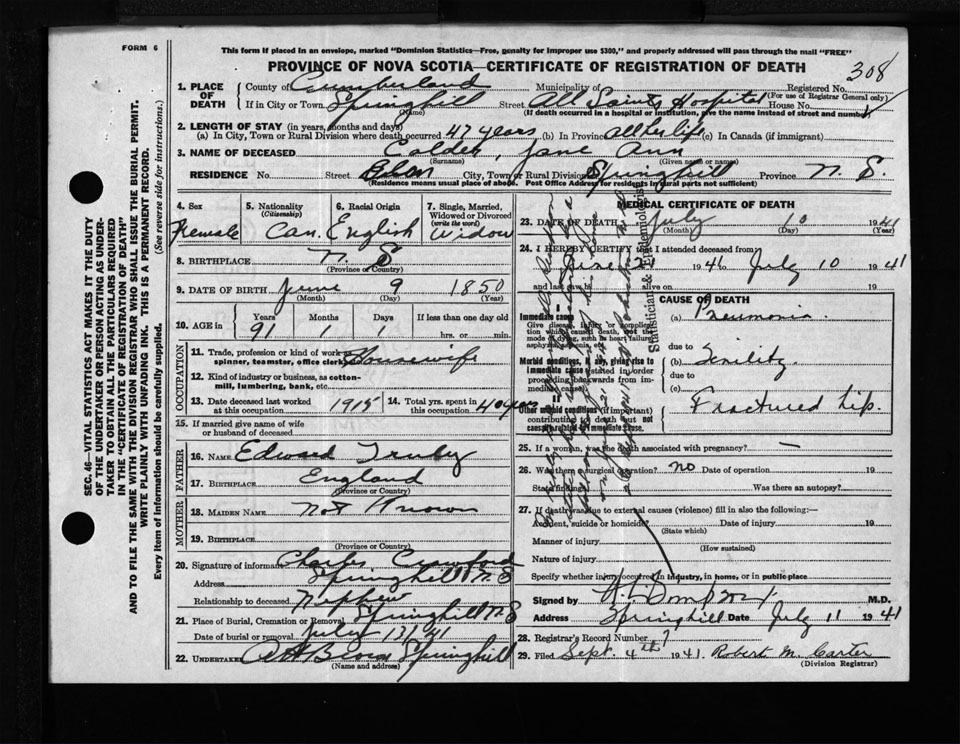 FORM 6
This form if placed in an envelope, marked "Dominion Statistics—Free, penalty for improper use $300," and properly addressed will pass through the mail "FREE"
PROVINCE OF NOVA SCOTIA—CERTIFICATE OF REGISTRATION OF DEATH
308
SEC. 46—VITAL STATISTICS ACT MAKES IT THE DUTY
OF THE UNDERTAKER OR PERSON ACTING AS UNDER-
TAKER TO OBTAIN ALL THE PARTICULARS REQUIRED
IN THE "CERTIFICATE OF REGISTRATION OF DEATH"
AND TO FILE THE SAME WITH THE DIVISION REGISTRAR WHO SHALL ISSUE THE BURIAL PERMIT.
WRITE PLAINLY WITH UNFADING INK. THIS IS A PERMANENT RECORD.
Every item of information should be carefully supplied. (See reverse side for instructions.)
1. PLACE OF DEATH
County of Cumberland Municipality of Registered No.
(For use of Registrar General only)
If in City or Town Springhill Street All Saints Hospital House No.
(Name) (If death occurred in a hospital or institution, give the name instead of street and number)
2. LENGTH OF STAY (in years, months and days)
(a) In City, Town or Rural Division where death occurred 47 years (b) In Province all her life (c) In Canada (if immigrant)
3. NAME OF DECEASED Calder, Jane Ann
(Surname) (Given name or names)
RESIDENCE No. Street City, Town or Rural Division Springhill Province N. S.
(Residence means usual place of abode. Post Office Address for residents in rural parts not sufficient)
4. Sex Female
5. Nationality (Citizenship) Can.
6. Racial Origin English
7. Single, Married, Widowed or Divorced (write the word) Widow
8. BIRTHPLACE N. S
(Province or Country)
9. DATE OF BIRTH June 9 1850
(Month) (Day) (Year)
10. AGE in Years Months Days If less than one day old
91 1 1 hrs. or min.
OCCUPATION
11. Trade, profession or kind of work as spinner, teamster, office clerk, Housewife
12. Kind of industry or business, as cotton-mill, lumbering, bank, etc.
13. Date deceased last worked at this occupation 1915
14. Total yrs. spent in this occupation 40 years
15. If married give name of wife or husband of deceased
FATHER
16. NAME Edward Truby
17. BIRTHPLACE England
(Province or Country)
MOTHER
18. MAIDEN NAME Not Known
19. BIRTHPLACE
(Province or Country)
20. Signature of informant Charles Crawford
Address Springhill N. S
Relationship to deceased Nephew
21. Place of Burial, Cremation or Removal Springhill N. S
Date of burial or removal July 13/41
22. UNDERTAKER A H Brown Springhill
(Name and address)
MEDICAL CERTIFICATE OF DEATH
23. DATE OF DEATH July 10 1941
(Month) (Day) (Year)
24. I HEREBY CERTIFY that I attended deceased from
June 1941 to July 10 1941
and last saw h alive on 19
CAUSE OF DEATH
Immediate cause
Give disease, injury or complication which caused death, not the mode of dying, such as heart failure, asphyxia, asthenia, etc.
(a) Pneumonia
due to
Morbid conditions, if any, giving rise to immediate cause (stated in order proceeding backwards from immediate cause)
(b) Senility
due to
(c)
Other morbid conditions (if important) contributing to death but not causally related to immediate cause.
Fractured hip.
Statistician & Epidemiologist
25. If a woman, was the death associated with pregnancy? —
26. Was there a surgical operation? no Date of operation 19
State findings Was there an autopsy?
27. If death was due to external causes (violence) fill in also the following:—
Accident, suicide or homicide? Date of injury 19
(State which)
Manner of injury
(How sustained)
Nature of injury
Specify whether injury occurred in industry, in home, or in public place
Signed by M.D.
Address Springhill Date July 11 1941
28. Registrar's Record Number 7
29. Filed Sept. 4th 1941. Robert M. Carter
(Division Registrar)